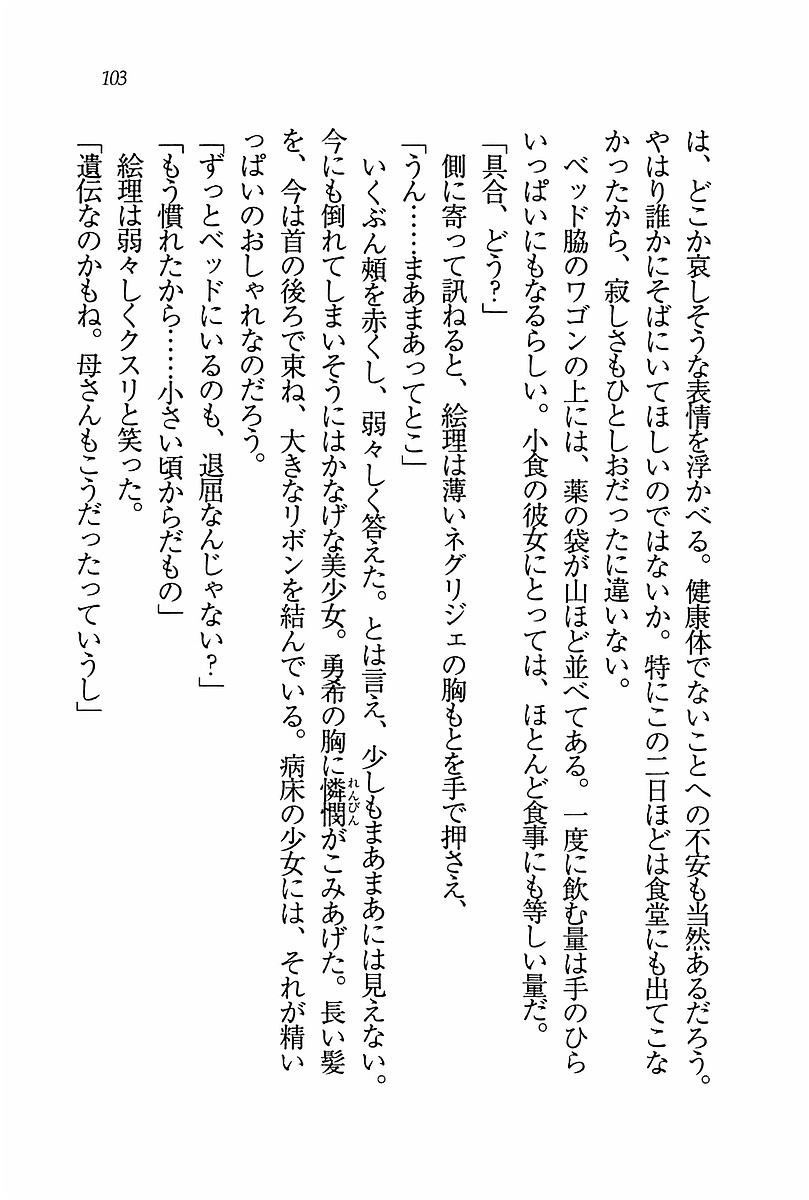 103
は、どこか哀しそうな表情を浮かべる。健康体でないことへの不安も当然あるだろう。
やはり誰かにそばにいてほしいのではないか。特にこの二日ほどは食堂にも出てこな
かったから、寂しさもひとしおだったに違いない。
ベッド脇のワゴンの上には、薬の袋が山ほど並べてある。一度に飲む量は手のひら
いっぱいにもなるらしい。小食の彼女にとっては、ほとんど食事にも等しい量だ。
「具合、どう?」
側に寄って訊ねると、絵理は薄いネグリジェの胸もとを手で押さえ、
「うん……まあまあってとこ」
いくぶん頬を赤くし、弱々しく答えた。とは言え、少しもまあまあには見えない。
今にも倒れてしまいそうにはかなげな美少女。勇希の胸に憐憫がこみあげた。長い髪
れんびん
を、今は首の後ろで束ね、大きなリボンを結んでいる。病床の少女には、それが精い
っぱいのおしゃれなのだろう。
「ずっとベッドにいるのも、退屈なんじゃない?」
「もう慣れたから……小さい頃からだもの」
絵理は弱々しくクスリと笑った。
「遺伝なのかもね。母さんもこうだったっていうし」